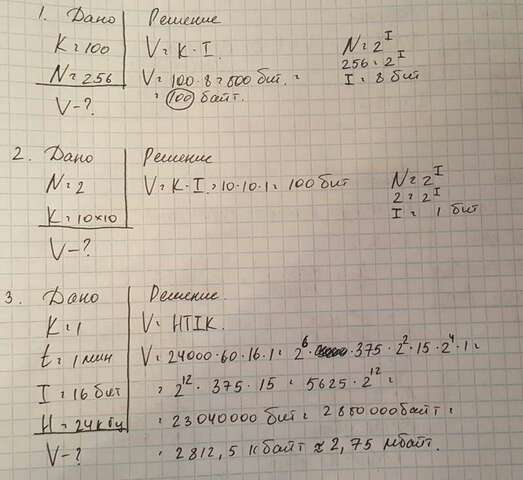 1. Дано
K=100
N=256
V-?
Решение
V=K·I.
V=100·8=800 бит. =
= 100 байт.
N=2^I
256=2^I
I=8 бит
2. Дано
N=2
K=10×10
V-?
Решение
V=K·I=10·10·1=100 бит
N=2^I
2=2^I
I= 1 бит
3. Дано
K=1
t=1 мин
I=16 бит
H=24 кГц
V-?
Решение.
V=HTIK.
V=24000·60·16·1=2^6· ·375·2^2·15·2^4·1=
=2^12·375·15=5625·2^12=
=23040000 бит=2880000 байт=
=2812,5 кбайт≈2,75 мбайт.